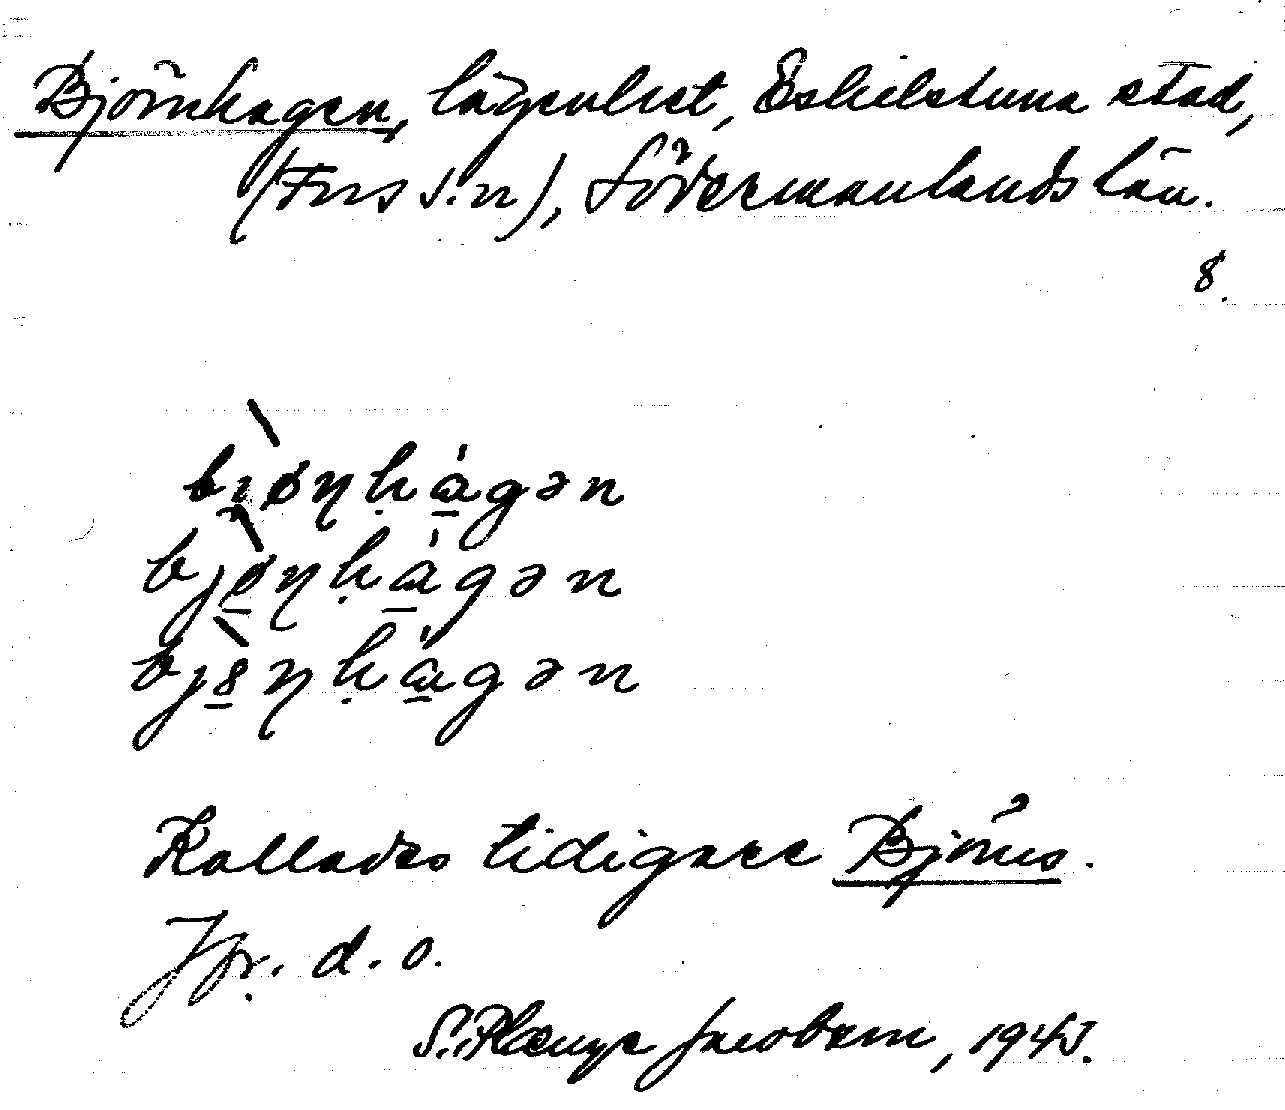 Björnhagen, lägenhet, Eskilstuna stad,
(Fors s:n), Södermanlands län.
8.
bjønḥa̱gən
bjø̱nḥa̱gən
bjꞩ̱nḥa̱gən
Kallades tidigare Björns.
Jfr. d. o.
Jacobson, 1945.